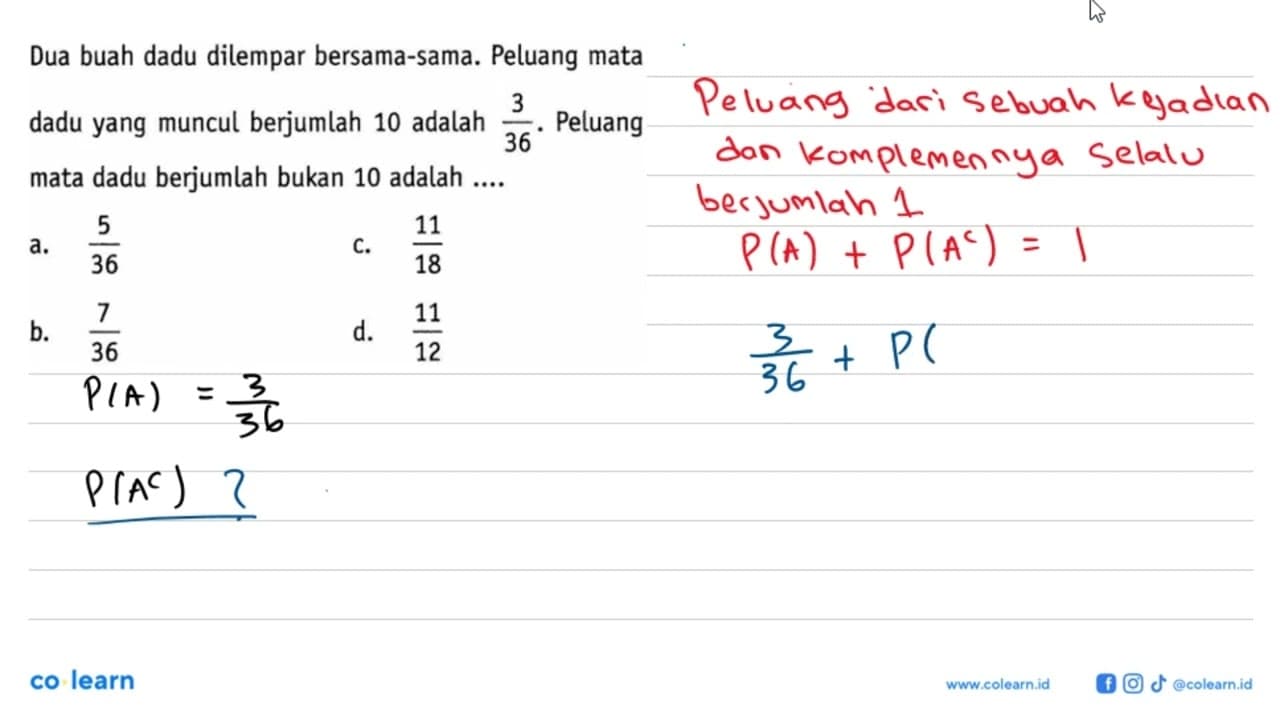 Dua buah dadu dilempar bersama-sama. Peluang mata
dadu yang muncul berjumlah 10 adalah 3/36. Peluang
mata dadu berjumlah bukan 10 adalah ....
a. 5/36 c. 11/18
b. 7/36 d. 11/12
P(A) = 3/36
P(Aᶜ) ?
Peluang dari sebuah kejadian
dan komplemennya selalu
berjumlah 1
P(A) + P(Aᶜ) = 1
3/36 + P(
co learn
www.colearn.id @colearn.id